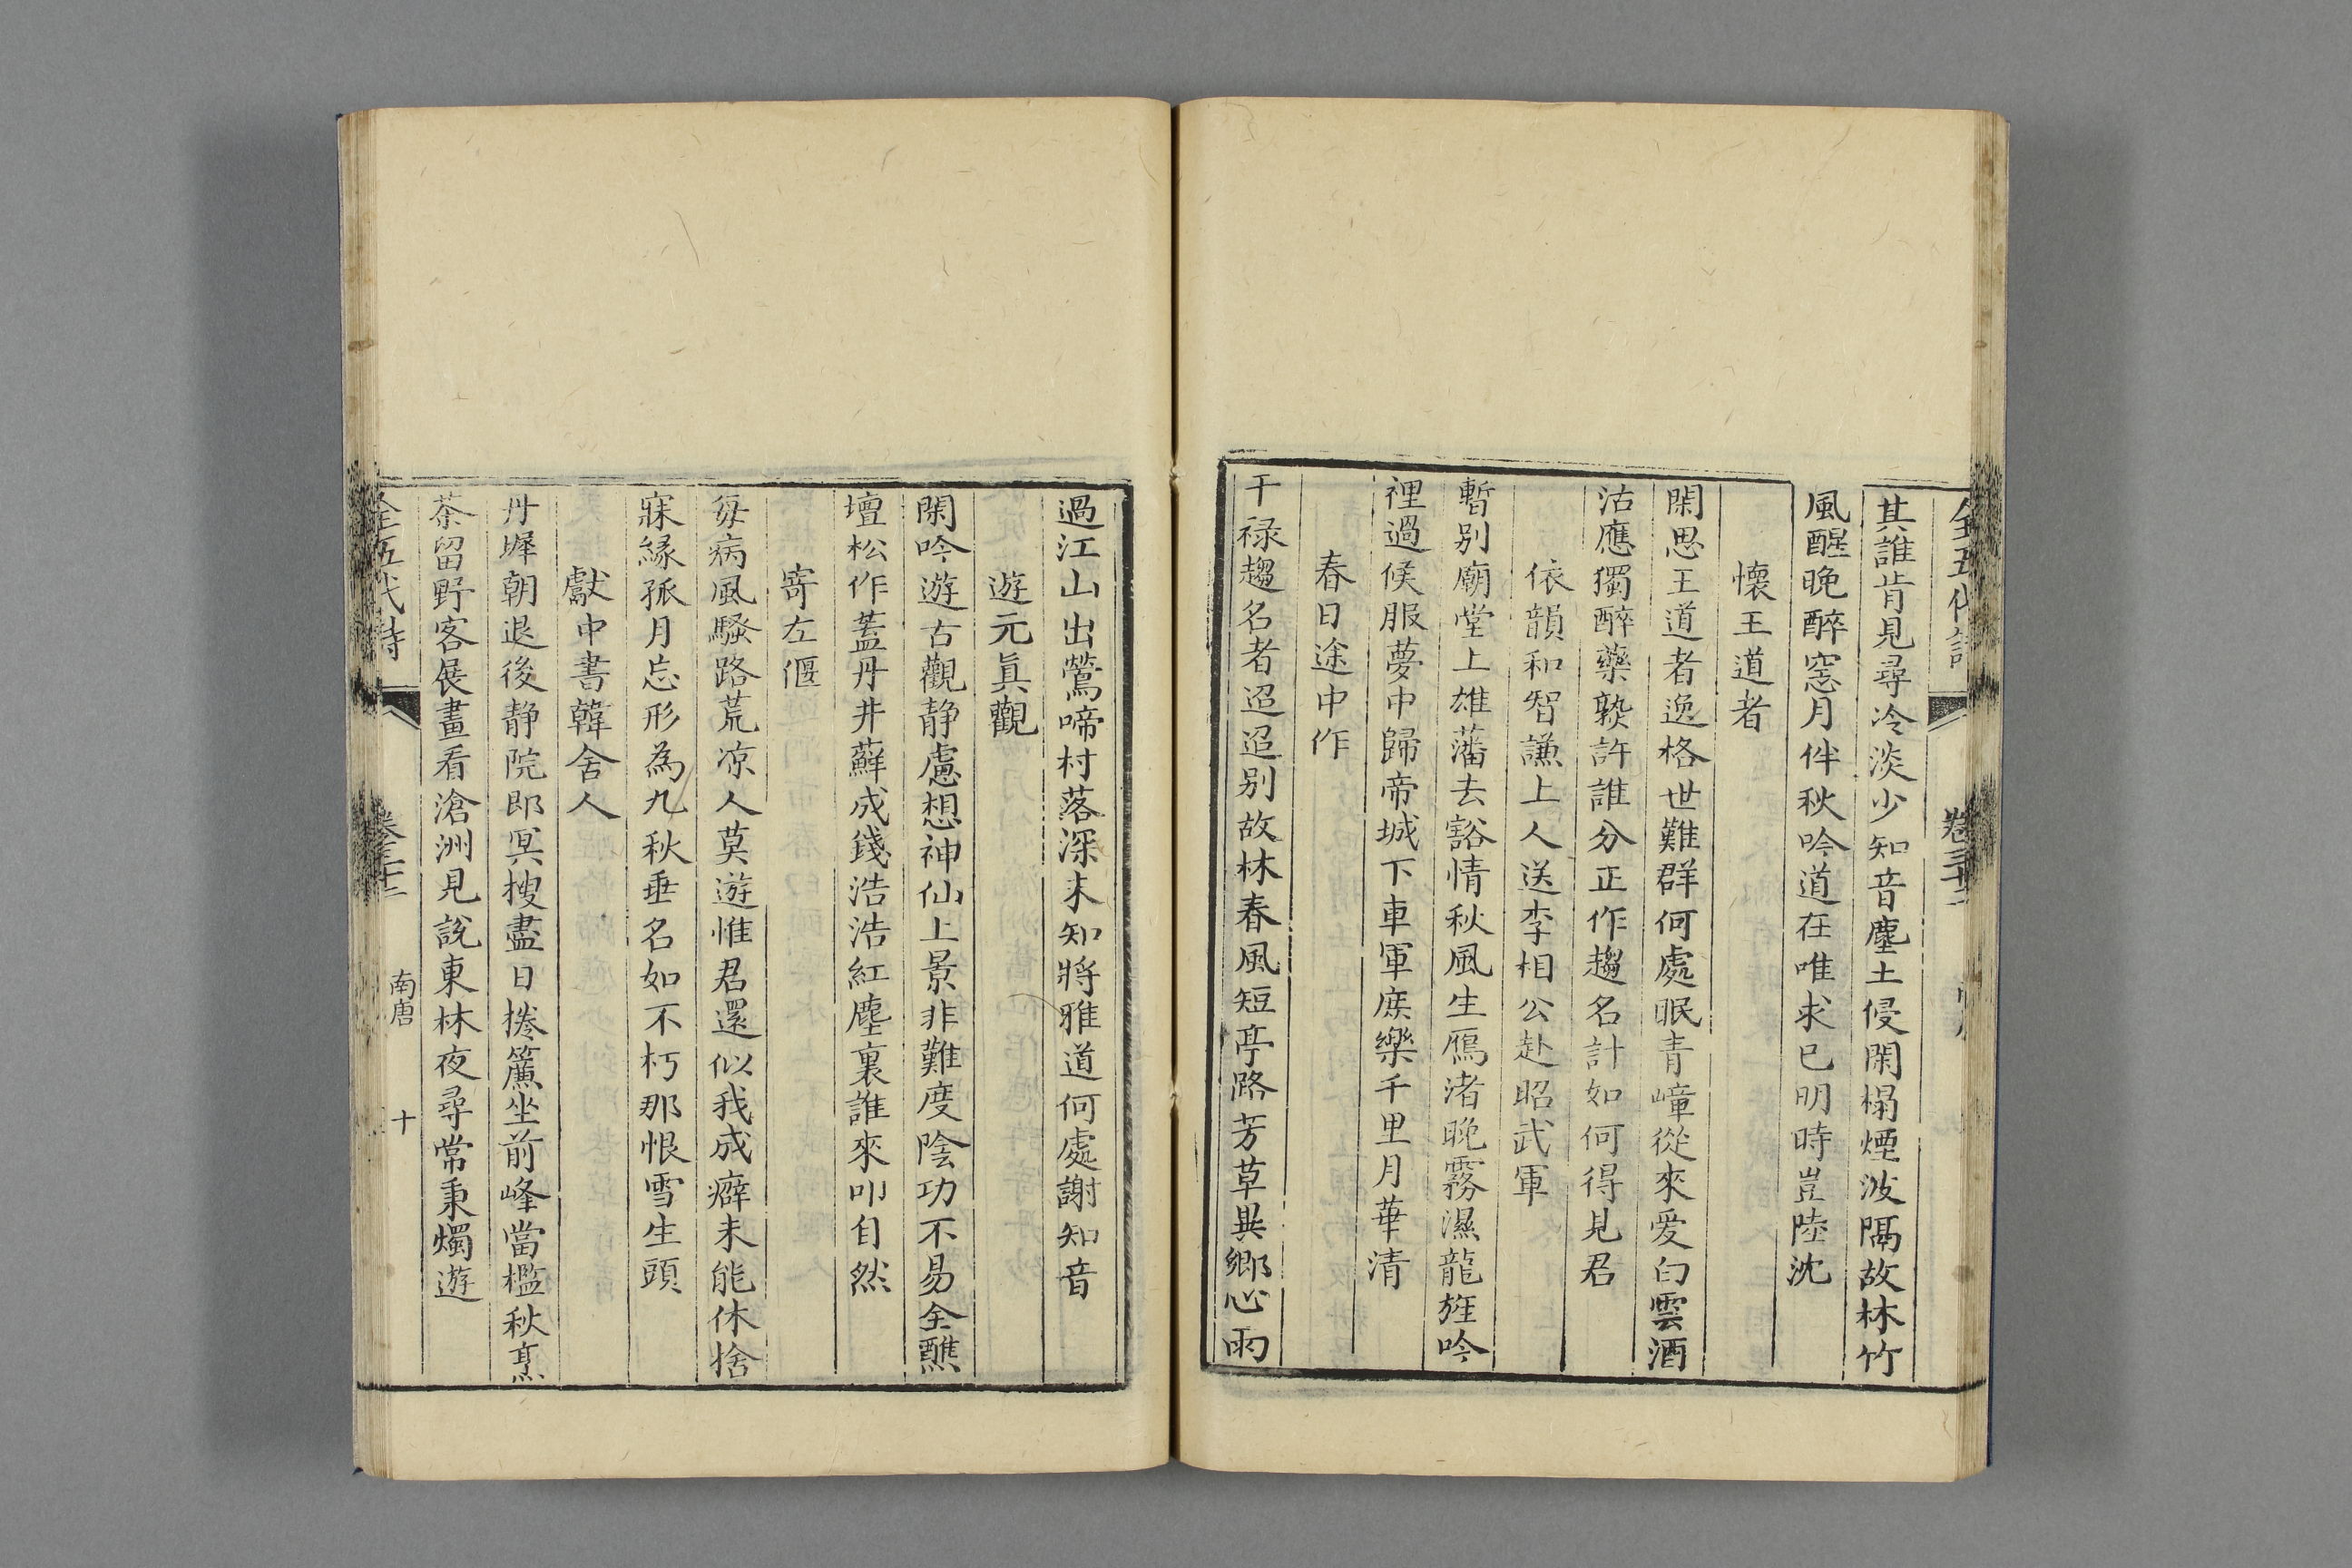 全五代詩
卷三十二
其誰肯見尋冷淡少知音塵土侵閑榻煙波隔故林竹
風醒晚醉窓月伴秋吟道在唯求已明時豈陸沈
懷王道者
閑思王道者逸格世難群何處眠青嶂從來愛白雲酒
沽應獨醉藥熟許誰分正作趨名計如何得見君
依韻和智謙上人送李相公赴昭武軍
暫别廟堂上雄藩去豁情秋風生鴈渚晚霧濕龍旌吟
裡過侯服夢中歸帝城下車軍庶樂千里月華清
春日途中作
干禄趨名者迢迢别故林春風短亭路芳草異鄉心雨
過江山出鶯啼村落深未知將雅道何處謝知音
遊元眞觀
閑吟遊古觀静慮想神仙上景非難度陰功不易全醮
壇松作蓋丹井蘚成錢浩浩紅塵裏誰來叩自然
寄左偃
每病風騷路荒凉人莫遊惟君還似我成癖未能休捨
寐緣孤月忘形為九秋垂名如不朽那恨雪生頭
獻中書韓舍人
丹墀朝退後静院即冥搜盡日捲簾坐前峰當檻秋烹
茶留野客展畫看滄洲見說東林夜尋常秉燭遊
全五代詩
卷三十二
南唐
十